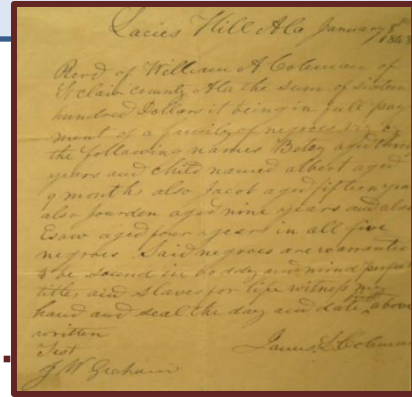 Lacies Hill Ala January 8th
1848
Recd of William A Coleman of
St clair county Ala the sum of sixteen
hundred Dollars it being in full pay
ment of a family of negroes viz of
the following names Betsy aged thirty
years and child named albert aged
9 months also Jacob aged fifteen years
also Jourden aged nine years and also
Esaw aged four years in all five
negroes Said negroes are warranted
to be sound in boddy and mind perfect
titles and slaves for life witness my
hand and seal the day and date above
written
Test
James L Coleman
J W Graham